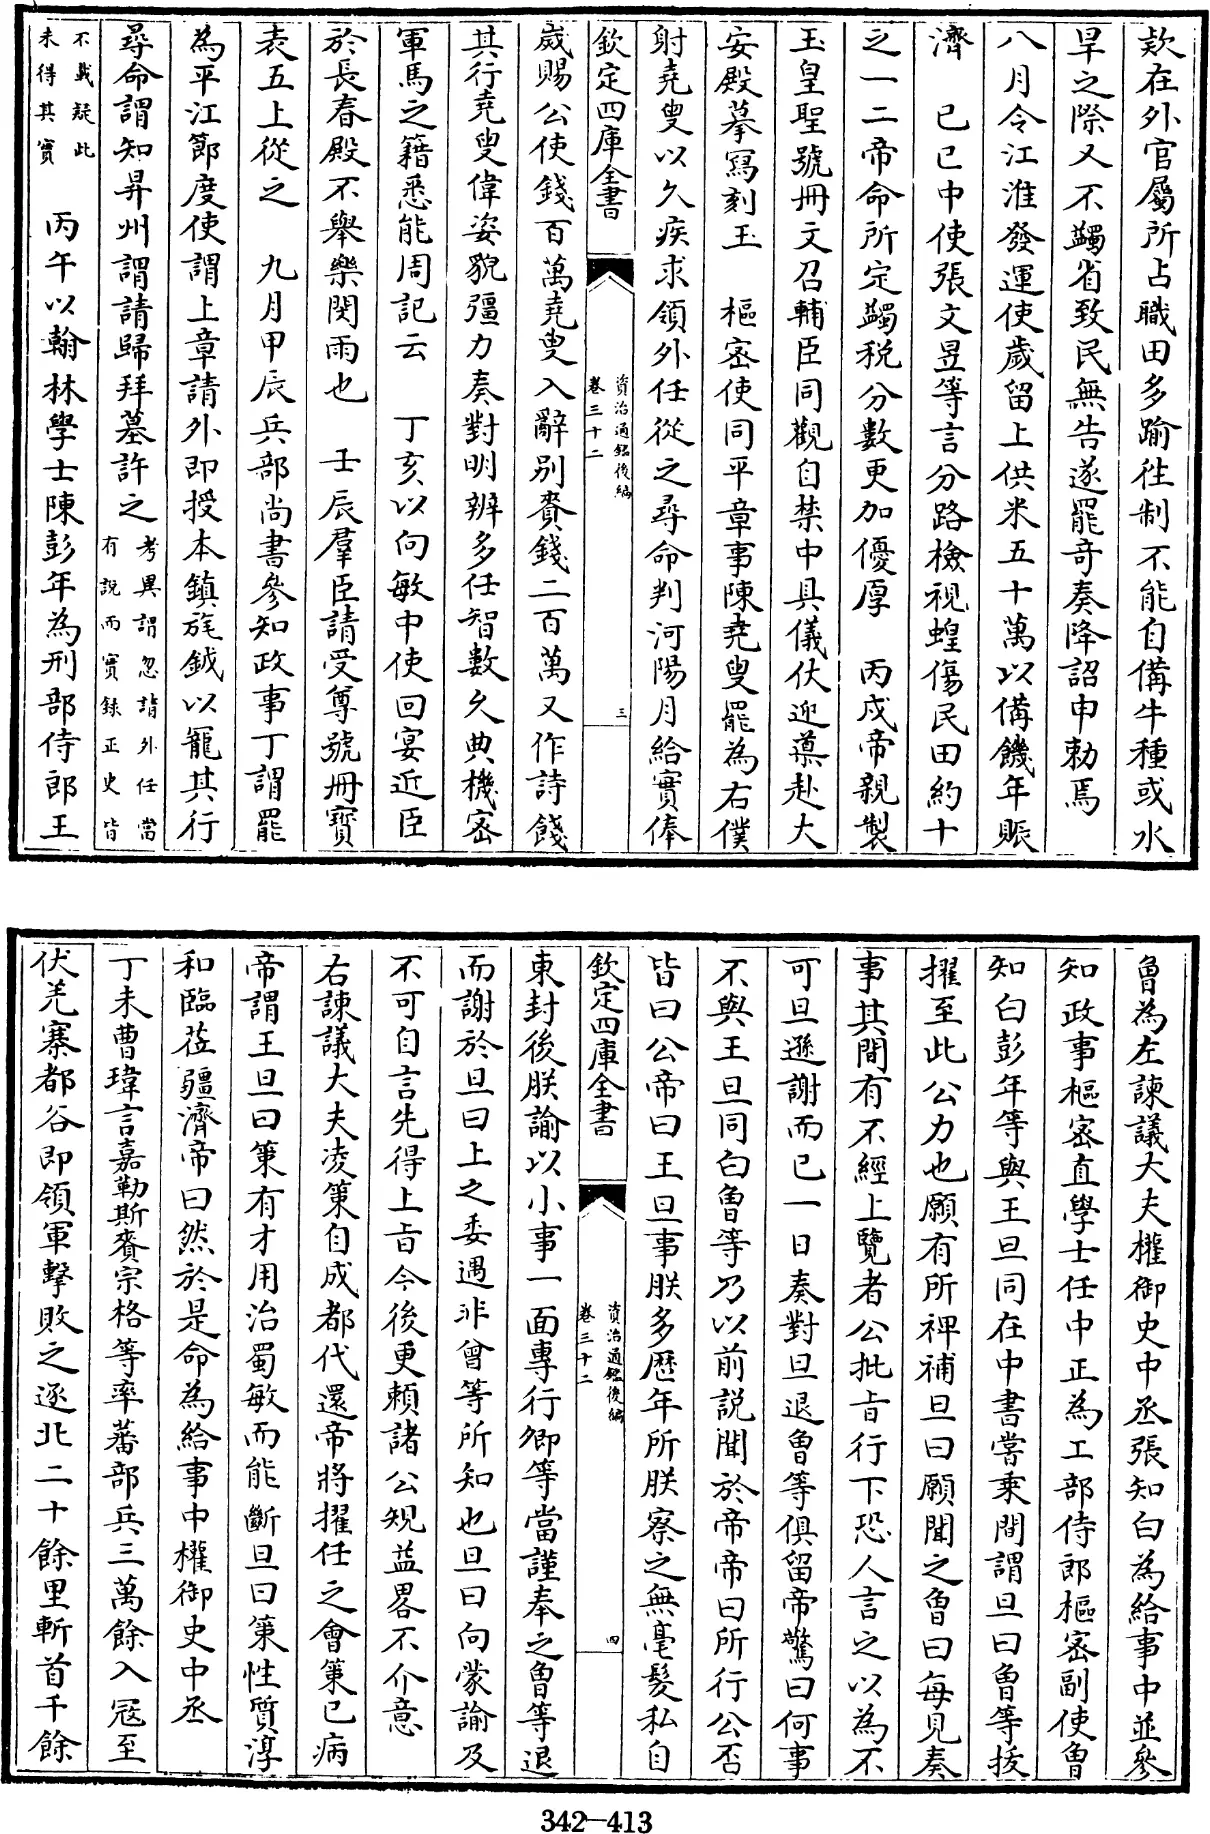 欵在外官屬所占職田多踰往制不能自備牛種或水
旱之際又不蠲省致民無告遂罷竒奏降詔申勅焉
八月令江淮發運使歲留上供米五十萬以備饑年賑
濟　己巳中使張文昱等言分路檢視蝗傷民田約十
之一二帝命所定蠲税分數更加優厚　丙戌帝親製
玉皇聖號冊文召輔臣同觀自禁中具儀仗迎導赴大
安殿摹寫刻玉　樞宻使同平章事陳堯叟罷為右僕
射堯叟以久疾求領外任從之尋命判河陽月給實俸
欽定四庫全書
資治通鑑後編
卷三十二
三
歲賜公使錢百萬堯叟入辭别賚錢二百萬又作詩餞
其行堯叟偉姿貌彊力奏對明辨多任智數久典機宻
軍馬之籍悉能周記云　丁亥以向敏中使回宴近臣
於長春殿不舉樂閔雨也　壬辰羣臣請受尊號冊寶
表五上從之　九月甲辰兵部尚書參知政事丁謂罷
為平江節度使謂上章請外即授本鎮旄鉞以寵其行
尋命謂知昇州謂請歸拜墓許之考異謂忽請外任當
有說而實録正史皆
不載疑此
未得其實　丙午以翰林學士陳彭年為刑部侍郎王
曾為左諫議大夫權御史中丞張知白為給事中並參
知政事樞宻直學士任中正為工部侍郎樞宻副使曾
知白彭年等與王旦同在中書嘗乘間謂旦曰曾等拔
擢至此公力也願有所裨補旦曰願聞之曾曰每見奏
事其間有不經上覽者公批㫖行下恐人言之以為不
可旦遜謝而已一日奏對旦退曾等俱留帝驚曰何事
不與王旦同白曾等乃以前説聞於帝帝曰所行公否
皆曰公帝曰王旦事朕多歴年所朕察之無毫髮私自
欽定四庫全書
資治通鑑後編
卷三十二
四
東封後朕諭以小事一面專行卿等當謹奉之曾等退
而謝於旦曰上之委遇非曾等所知也旦曰向蒙諭及
不可自言先得上㫖今後更頼諸公規益畧不介意
右諫議大夫凌策自成都代還帝將擢任之會策已病
帝謂王旦曰策有才用治蜀敏而能斷旦曰策性質淳
和臨莅彊濟帝曰然於是命為給事中權御史中丞
丁未曹瑋言嘉勒斯賚宗格等率蕃部兵三萬餘入冦至
伏羌寨都谷即領軍擊敗之逐北二十餘里斬首千餘
342—413